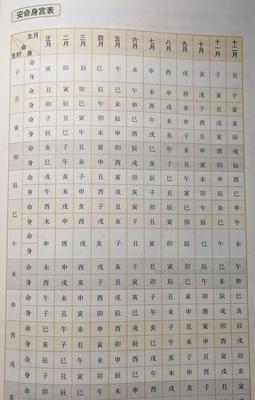 安命身宫表
生月
命身
生时
正月 二月 三月 四月 五月 六月 七月 八月 九月 十月 十一月 十二月
子 命 身 寅 卯 辰 巳 午 未 申 酉 戌 亥 子 丑
丑 命 丑 寅 卯 辰 巳 午 未 申 酉 戌 亥 子
身 卯 辰 巳 午 未 申 酉 戌 亥 子 丑 寅
寅 命 子 丑 寅 卯 辰 巳 午 未 申 酉 戌 亥
身 辰 巳 午 未 申 酉 戌 亥 子 丑 寅 卯
卯 命 亥 子 丑 寅 卯 辰 巳 午 未 申 酉 戌
身 巳 午 未 申 酉 戌 亥 子 丑 寅 卯 辰
辰 命 戌 亥 子 丑 寅 卯 辰 巳 午 未 申 酉
身 午 未 申 酉 戌 亥 子 丑 寅 卯 辰 巳
巳 命 酉 戌 亥 子 丑 寅 卯 辰 巳 午 未 申
身 未 申 酉 戌 亥 子 丑 寅 卯 辰 巳 午
午 命 身 申 酉 戌 亥 子 丑 寅 卯 辰 巳 午 未
未 命 未 申 酉 戌 亥 子 丑 寅 卯 辰 巳 午
身 酉 戌 亥 子 丑 寅 卯 辰 巳 午 未 申
申 命 午 未 申 酉 戌 亥 子 丑 寅 卯 辰 巳
身 戌 亥 子 丑 寅 卯 辰 巳 午 未 申 酉
酉 命 巳 午 未 申 酉 戌 亥 子 丑 寅 卯 辰
身 亥 子 丑 寅 卯 辰 巳 午 未 申 酉 戌
戌 命 辰 巳 午 未 申 酉 戌 亥 子 丑 寅 卯
身 子 丑 寅 卯 辰 巳 午 未 申 酉 戌 亥
亥 命 卯 辰 巳 午 未 申 酉 戌 亥 子 丑 寅